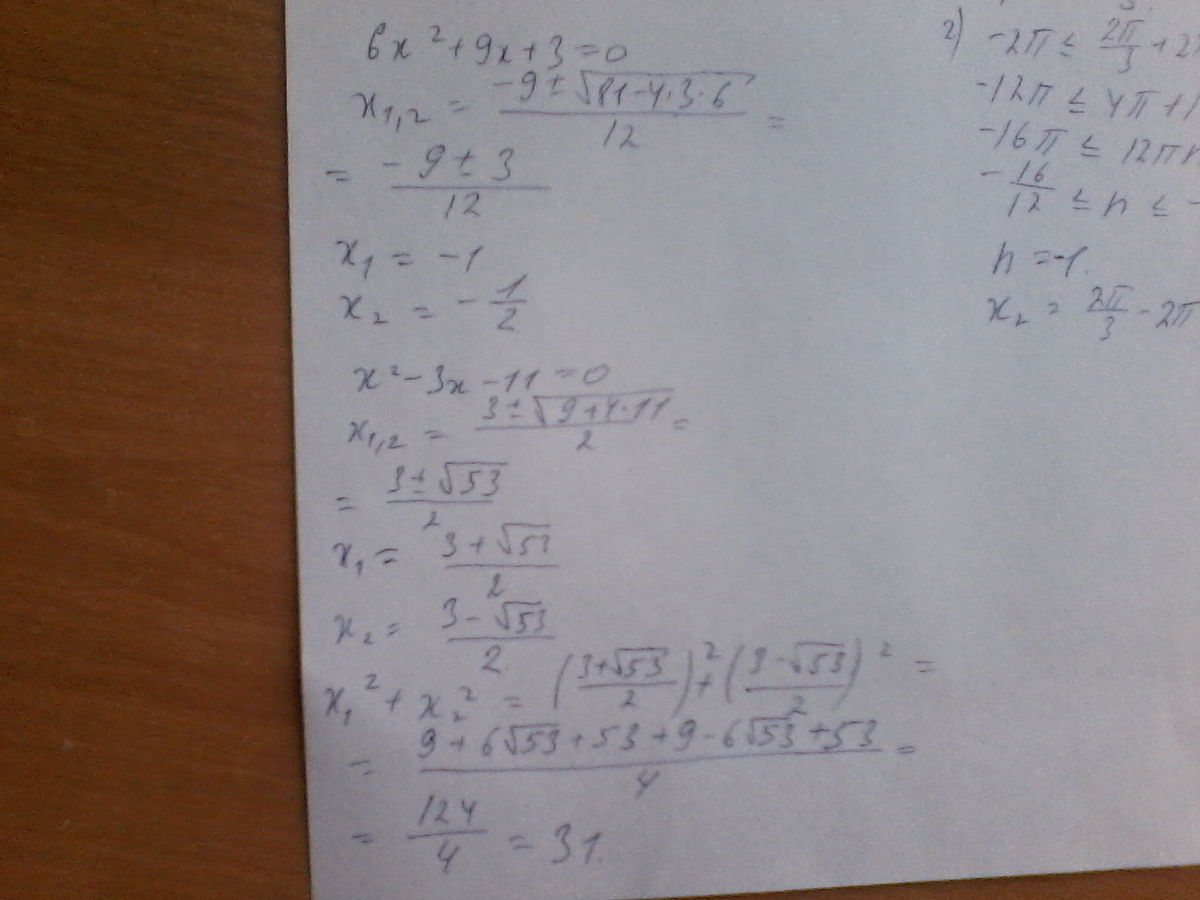 6x² + 9x + 3 = 0
x₁,₂ = (-9 ± √(81 - 4·3·6))/12 =
= (-9 ± 3)/12
x₁ = -1
x₂ = -1/2
x² - 3x - 11 = 0
x₁,₂ = (3 ± √(9 + 4·11))/2 =
= (3 ± √53)/2
x₁ = (3 + √53)/2
x₂ = (3 - √53)/2
x₁² + x₂² = ((3+√53)/2)² + ((3-√53)/2)² =
= (9 + 6√53 + 53 + 9 - 6√53 + 53)/4 =
= 124/4 = 31.
2) -2π ≤ 2π/3 + 2
-12π ≤ 4π +
-16π ≤ 12πn
-16/12 ≤ n ≤ -
n = -1.
x₂ = 2π/3 - 2π